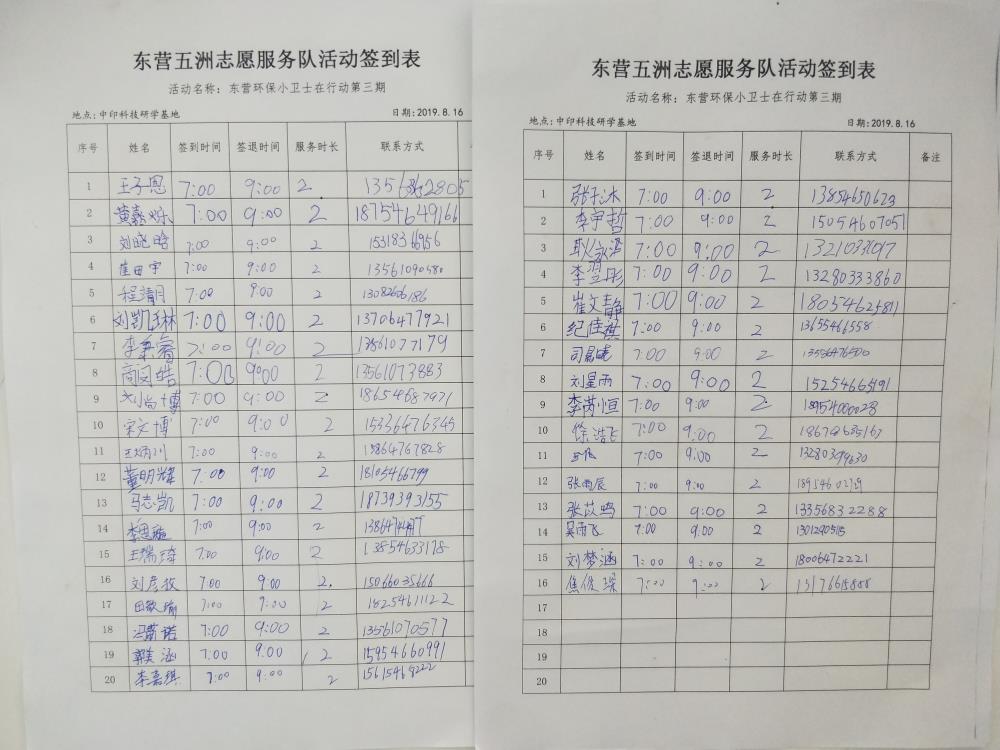 东营五洲志愿服务队活动签到表
活动名称：东营环保小卫士在行动第三期
地点：中印科技研学基地 日期：2019.8.16
序号 姓名 签到时间 签退时间 服务时长 联系方式
1 王子恩 7:00 9:00 2
2 黄嘉烁 7:00 9:00 2 18754649166
3 刘晓晗 7:00 9:00 2
4 崔田宇 7:00 9:00 2 13561090580
5 程清月 7:00 9:00 2 13082606186
6 刘凯琳 7:00 9:00 2 13706477921
7 7:00 9:00 2 13861077179
8 商闵皓 7:00 9:00 2 13561073883
9 刘尚博 7:00 9:00 2 18654687971
10 宋文博 7:00 9:00 2 15336476345
11 王炳川 7:00 9:00 2 15864767828
12 董明辉 7:00 9:00 2 18105466799
13 马志凯 7:00 9:00 2 18739393155
14 7:00 9:00 2
15 王瑞琦 7:00 9:00 2 13854633178
16 刘彦孜 7:00 9:00 2 15066035666
17 田敬瑜 7:00 9:00 2 18254611122
18 冯蕾诺 7:00 9:00 2 13561070577
19 郭美涵 7:00 9:00 2 15954660991
20 李嘉祺 7:00 9:00 2 15615469222
东营五洲志愿服务队活动签到表
活动名称：东营环保小卫士在行动第三期
地点：中印科技研学基地 日期：2019.8.16
序号 姓名 签到时间 签退时间 服务时长 联系方式 备注
1 张子沐 7:00 9:00 2 13854650623
2 李宇哲 7:00 9:00 2 15054607051
3 7:00 9:00 2
4 李翌彤 7:00 9:00 2 13280333860
5 崔文静 7:00 9:00 2 18054625811
6 纪佳祺 7:00 9:00 2 13655466558
7 司晨曦 7:00 9:00 2
8 刘星雨 7:00 9:00 2 15254665491
9 李芮恒 7:00 9:00 2 18954000028
10 徐浩飞 7:00 9:00 2
11 7:00 9:00 2
12 张雨辰 7:00 9:00 2
13 张苡鸣 7:00 9:00 2 13356832288
14 吴雨飞 7:00 9:00 2
15 刘梦涵 7:00 9:00 2 18006472221
16 焦俊琛 7:00 9:00 2
17
18
19
20